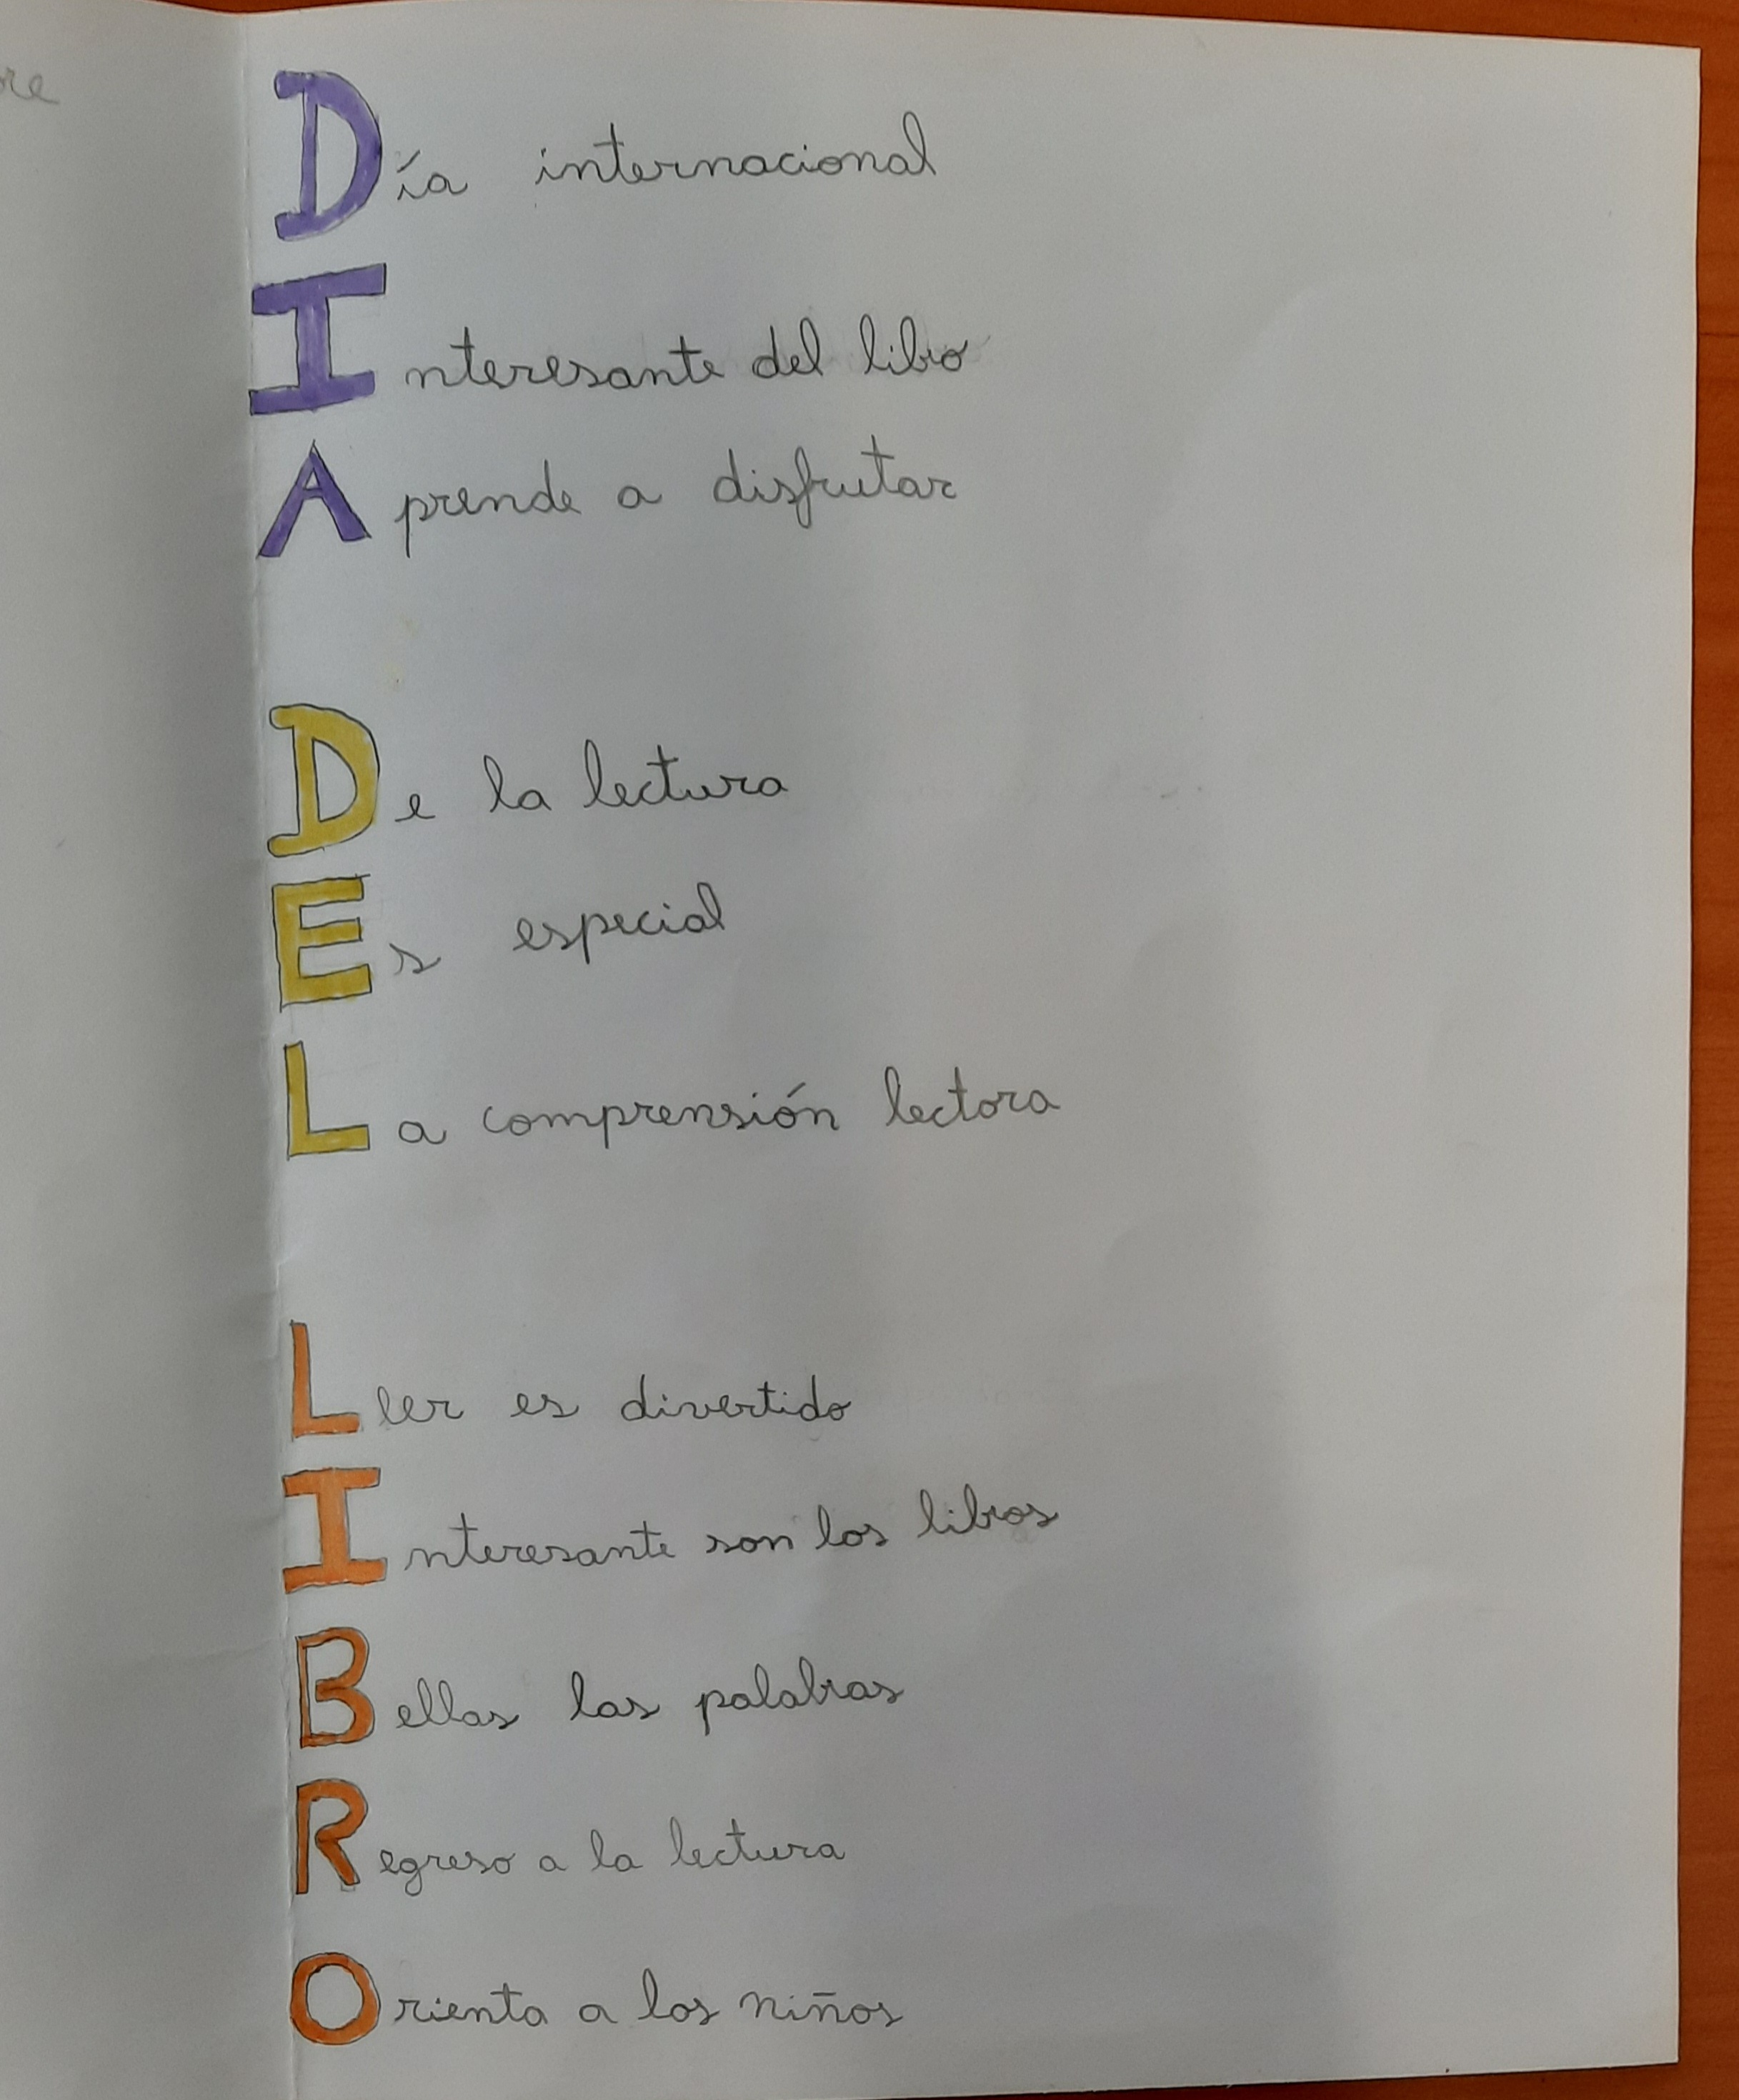 Día internacional
Interesante del libro
Aprende a disfrutar
De la lectura
Es especial
La comprensión lectora
Leer es divertido
Interesante son los libros
Bellas las palabras
Regreso a la lectura
Orienta a los niños